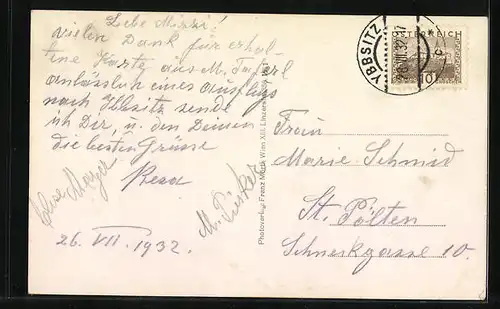 Liebe Mizzi!
vielen Dank für erhal-
tene Karte aus M. Taferl
anlässlich eines Ausflugs
nach Ybbsitz sende
ich Dir, u. den Deinen
die besten Grüsse
Resa
26. VII. 1932.
Photoverlag Franz Wien XIII, Linzerstr
YBBSITZ
ÖSTERREICH
10
Frau
Marie Schmid
St. Pölten
Schneckgasse 10.